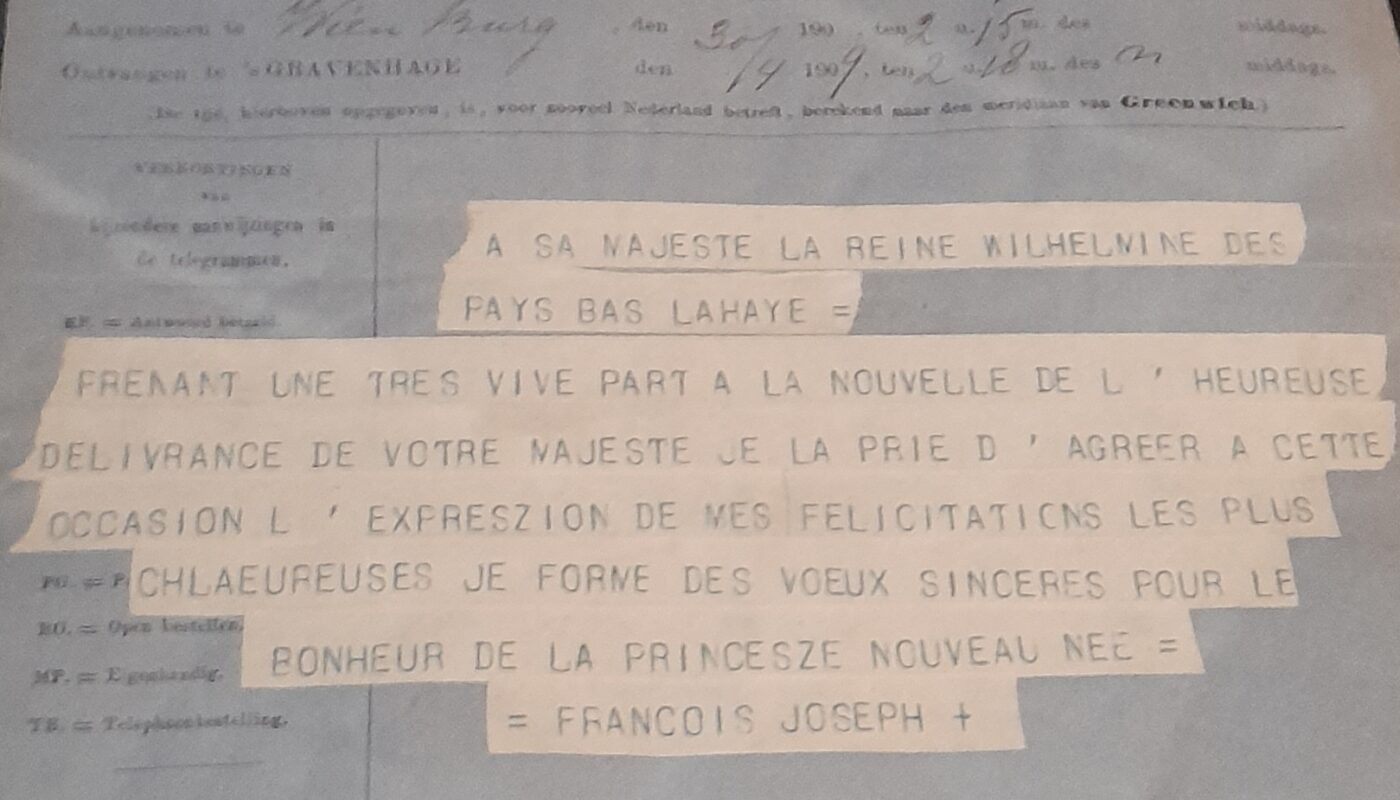 Aangenomen te Wien Burg, den 30/ 190 , ten 2 u. 15 m. des middags.
Ontvangen te 'sGRAVENHAGE den /4 1909, ten 2 u. 18 m. des m middags.
(De tijd, hierboven opgegeven, is, voor zooveel Nederland betreft, berekend naar den meridiaan van Greenwich.)
VERKORTINGEN
van
bijzondere aanwijzingen in
de telegrammen.
A SA MAJESTE LA REINE WILHELMINE DES
PAYS BAS LAHAYE =
RP. = Antwoord betaald.
PRENANT UNE TRES VIVE PART A LA NOUVELLE DE L ' HEUREUSE
DELIVRANCE DE VOTRE MAJESTE JE LA PRIE D ' AGREER A CETTE
OCCASION L ' EXPRESZION DE MES FELICITATIONS LES PLUS
PG. = P
CHLAEUREUSES JE FORME DES VOEUX SINCERES POUR LE
RO. = Open bestellen.
BONHEUR DE LA PRINCESZE NOUVEAU NEE =
MP. = Eigenhandig.
TB. = Telephoonbestelling.
= FRANCOIS JOSEPH +